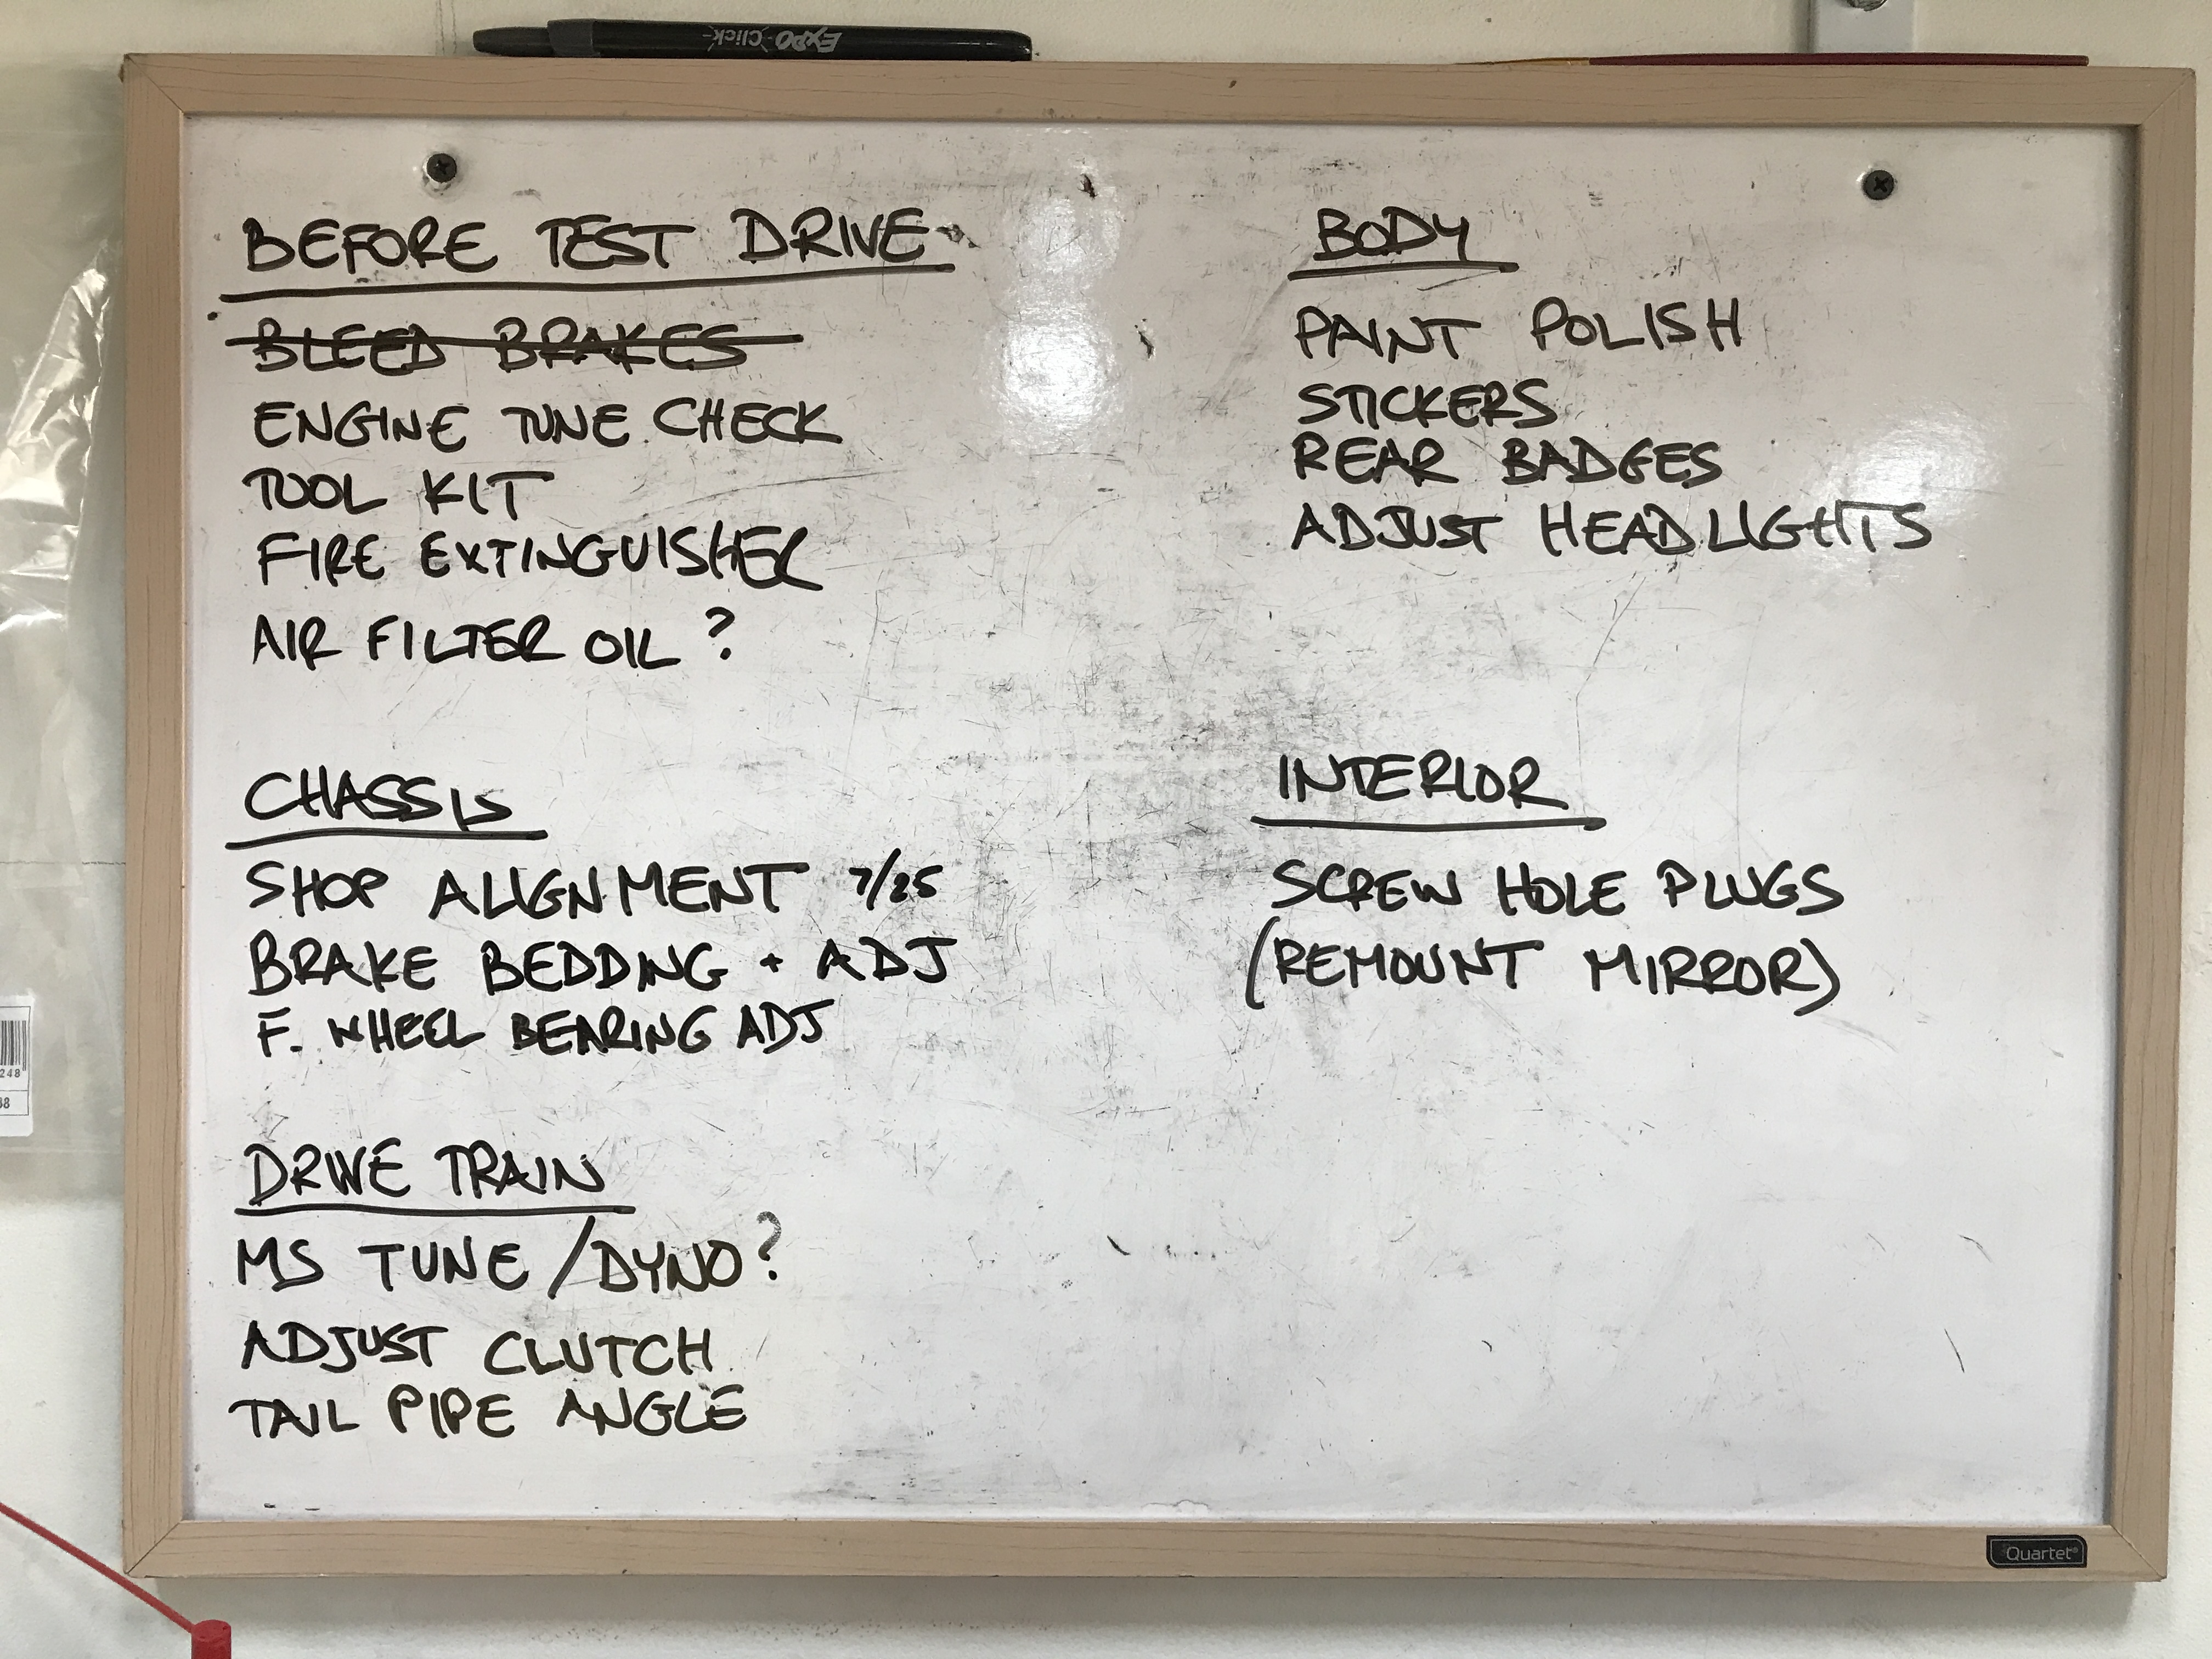 EXPO Click
BEFORE TEST DRIVE
BLEED BRAKES
ENGINE TUNE CHECK
TOOL KIT
FIRE EXTINGUISHER
AIR FILTER OIL ?
CHASSIS
SHOP ALIGNMENT 7/25
BRAKE BEDDING + ADJ
F. WHEEL BEARING ADJ
DRIVE TRAIN
MS TUNE / DYNO ?
ADJUST CLUTCH
TAIL PIPE ANGLE
BODY
PAINT POLISH
STICKERS
REAR BADGES
ADJUST HEADLIGHTS
INTERIOR
SCREW HOLE PLUGS
(REMOUNT MIRROR)
Quartet®
248